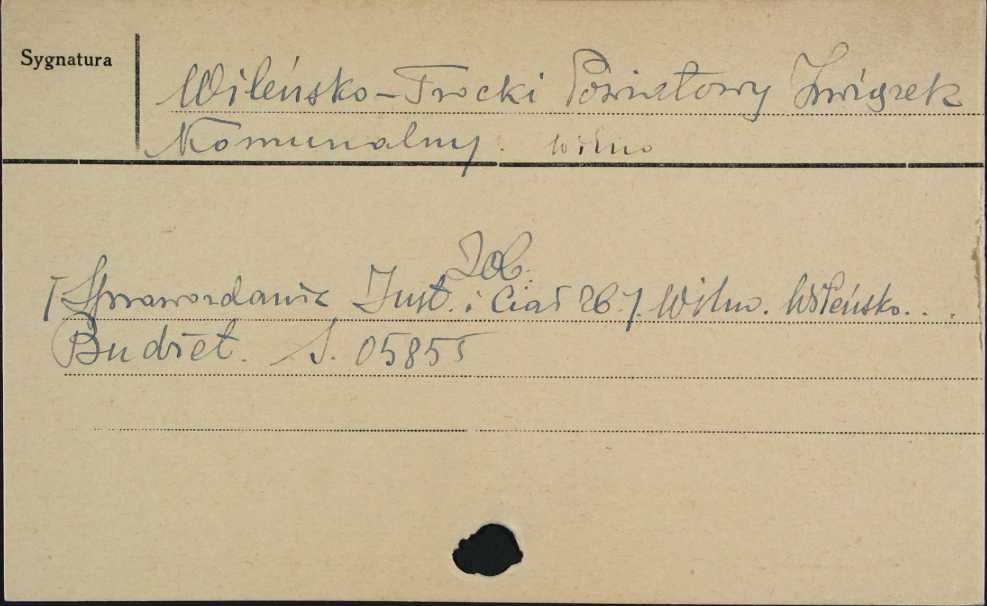 Sygnatura
Wileńsko-Trocki Powiatowy Związek
Komunalny. Wilno
Zob.
[Sprawozdania Inst. i Ciał zb.] Wilno. Wileńsko...
Budżet. S. 05855